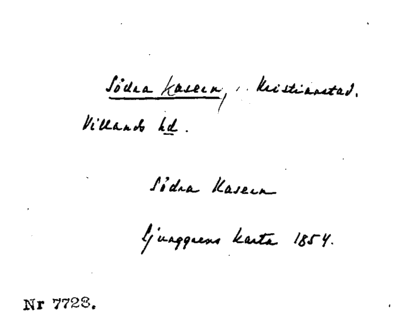 Södra Kasern, Kristianstad.
Villands hd.
Södra Kasern
Ljunggrens karta 1854.
Nr 7728.